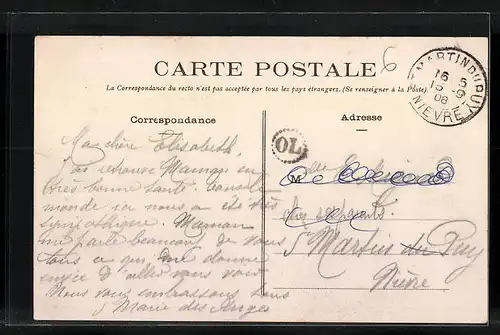 6
CARTE POSTALE
La Correspondance du recto n'est pas acceptée par tous les pays étrangers. (Se renseigner à la Poste).
Correspondance
Adresse
ST MARTIN DU PUY
16 5
15 - 9
08
NIÈVRE
OL
M
Ma chère Élisabeth,
j'ai retrouvé Maman en
très bonne santé. tout le
monde ici nous a été très
sympathique. Maman
me parle beaucoup de vous
tous ce qui me donne
envie d'aller vous voir
Nous vous embrassons tous
Marie des Anges
chez ses parents
St Martin du Puy
Nièvre